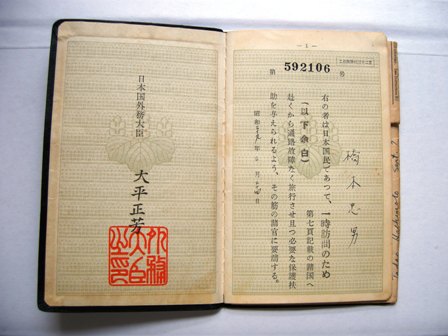 — 1 —
第 592106 号
橋本忠男
右の者は日本国民であって、一時訪問のため
第七頁記載の諸国へ
(以下余白)
赴くから通路故障なく旅行させ且つ必要な保護扶
助を与えられるよう、その筋の諸官に要請する。
昭和 年 月 日
日本国外務大臣
大平正芳
外務大臣之印
Tadao Hashimoto Sept. 2